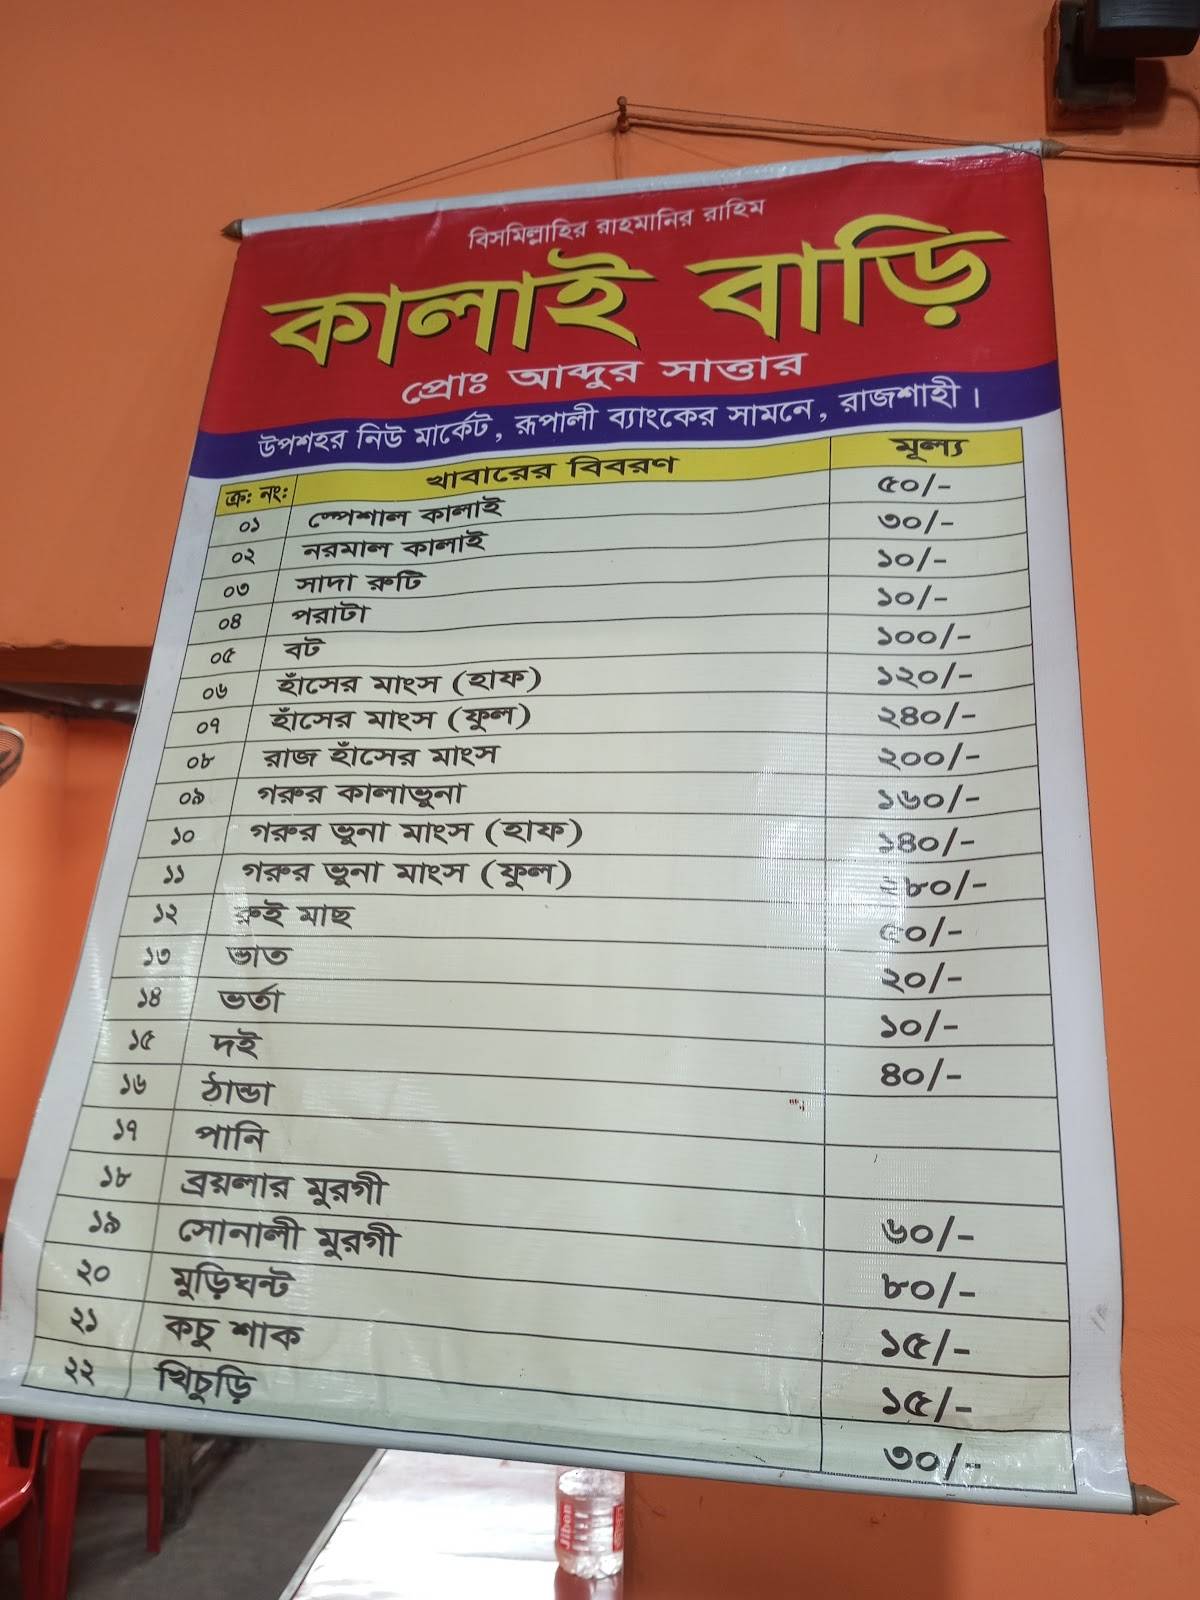 বিসমিল্লাহির রাহমানির রাহিম
কালাই বাড়ি
প্রোঃ আব্দুর সাত্তার
উপশহর নিউ মার্কেট, রূপালী ব্যাংকের সামনে, রাজশাহী।
ক্র: নং: খাবারের বিবরণ মূল্য
০১ স্পেশাল কালাই ৫০/-
০২ নরমাল কালাই ৩০/-
০৩ সাদা রুটি ১০/-
০৪ পরাটা ১০/-
০৫ বট ১০০/-
০৬ হাঁসের মাংস (হাফ) ১২০/-
০৭ হাঁসের মাংস (ফুল) ২৪০/-
০৮ রাজ হাঁসের মাংস ২০০/-
০৯ গরুর কালাভুনা ১৬০/-
১০ গরুর ভুনা মাংস (হাফ) ১৪০/-
১১ গরুর ভুনা মাংস (ফুল)
১২ রুই মাছ
১৩ ভাত ২০/-
১৪ ভর্তা ১০/-
১৫ দই ৪০/-
১৬ ঠান্ডা
১৭ পানি
১৮ ব্রয়লার মুরগী ৬০/-
১৯ সোনালী মুরগী ৮০/-
২০ মুড়িঘন্ট ১৫/-
২১ কচু শাক ১৫/-
২২ খিচুড়ি ৩০/-
Jibon